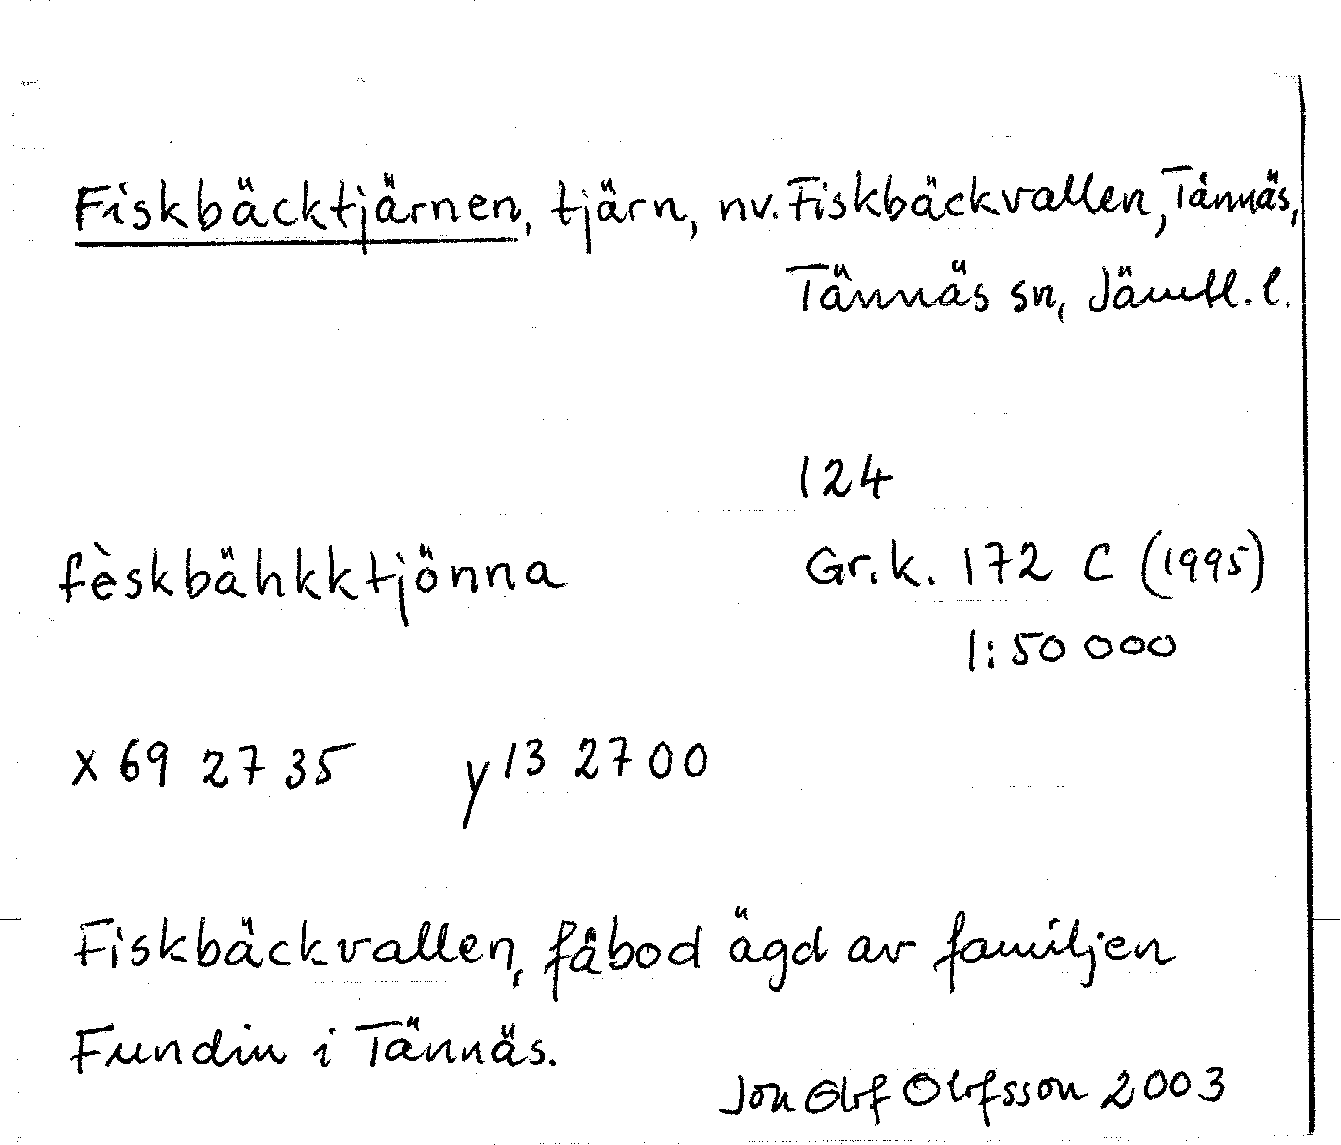 Fiskbäcktjärnen, tjärn, nv. Fiskbäckvallen, Tännäs,
Tännäs sn, Jämtl. l.
124
fèskbähkktjönna Gr.k. 172 C (1995)
1:50 000
x 69 27 35 y 13 27 00
Fiskbäckvallen, fäbod ägd av familjen
Fundin i Tännäs.
Jon Olof Olofsson 2003